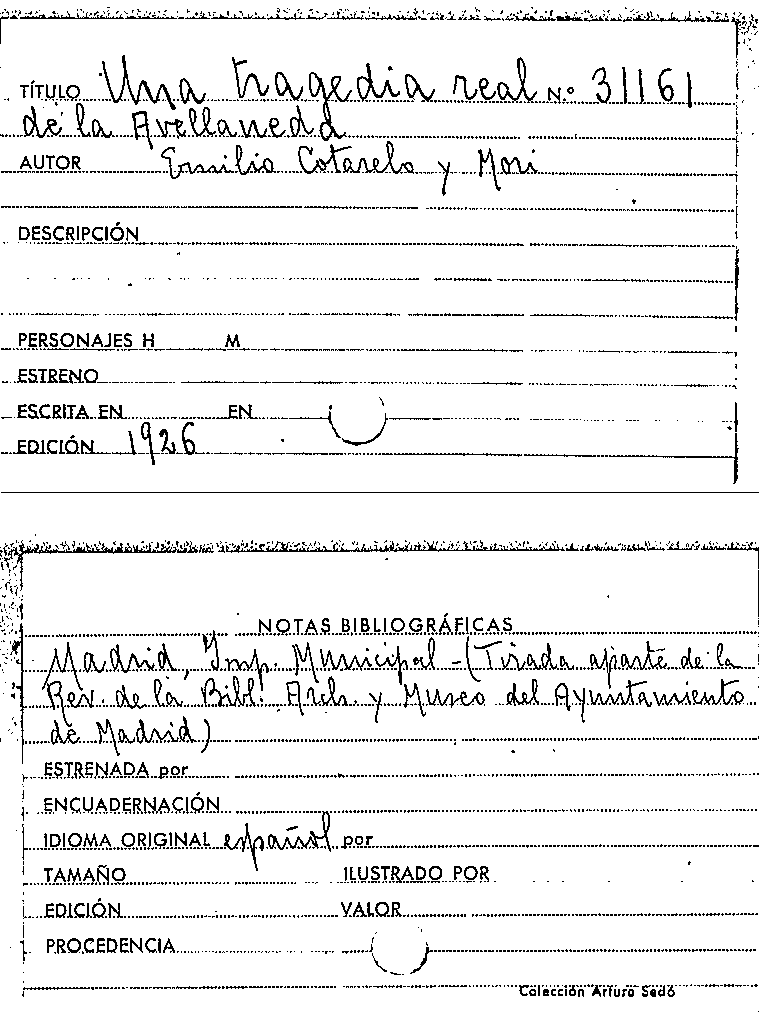 TÍTULO Una tragedia real N.º 31161
de la Avellaneda
AUTOR Emilio Cotarelo y Mori
DESCRIPCIÓN
PERSONAJES H M
ESTRENO
ESCRITA EN EN
EDICIÓN 1926
NOTAS BIBLIOGRÁFICAS
Madrid, Imp. Municipal - (Tirada aparte de la
Rev. de la Bibl. Arch. y Museo del Ayuntamiento
de Madrid)
ESTRENADA por
ENCUADERNACIÓN
IDIOMA ORIGINAL español por
TAMAÑO ILUSTRADO POR
EDICIÓN VALOR
PROCEDENCIA
Colección Arturo Sedó